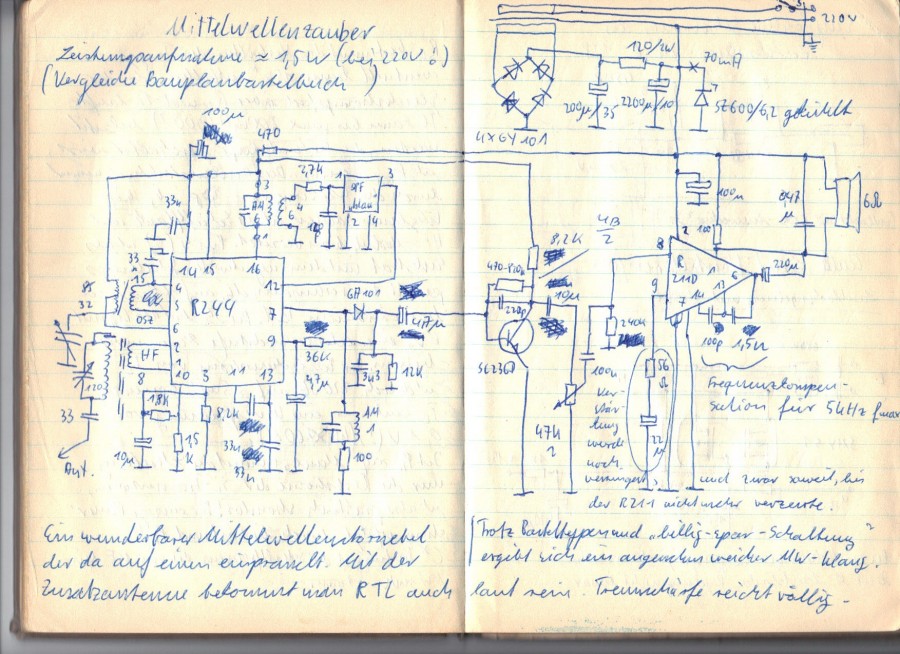 Mittelwellenzauber
Leistungsaufnahme ≈ 1,5W (bei 220V!)
(Vergleiche Bauplanbastelbuch)
100µ
470
2,7K
1
3
SPF
blau
2 4
33n
3
AM
6
1
4
6
33n
15
14 15 16
4
5
6
2
1
10 3 11 13
12
7
9
R244
HF
8
32
120
33
Ant.
OSZ
GA101
4,7µ
36K
47µ
3n3
12K
1,8K
10µ
1,5K
8,2K
33n
AM
1
100
220V
120/2W
70mA
200µ/35
2200µ/10
SZ600/6,2 gekühlt
4xGY101
UB
2
8,2K
470-820K
220p
10µ
SC236D
240K
100n
47K
Verstärkung
wurde
noch
verringert
56
Ω
22
µ
100µ
100
0,47
µ
6Ω
220µ
R
211D
8
2
9
7
14
13
6
100p
1,5n
Frequenzkompensation
für 5kHz fmax
und zwar soweit, bis
der R211 nicht mehr verzerrte.
Ein wunderbarer Mittelwellenstörnebel
der da auf einen einprasselt. Mit der
Zusatzantenne bekommt man RTL auch
Trotz Basteltypen und „billig-spar-Schaltung"
ergibt sich ein angenehm weicher MW-Klang.
laut rein. Trennschärfe reicht völlig.